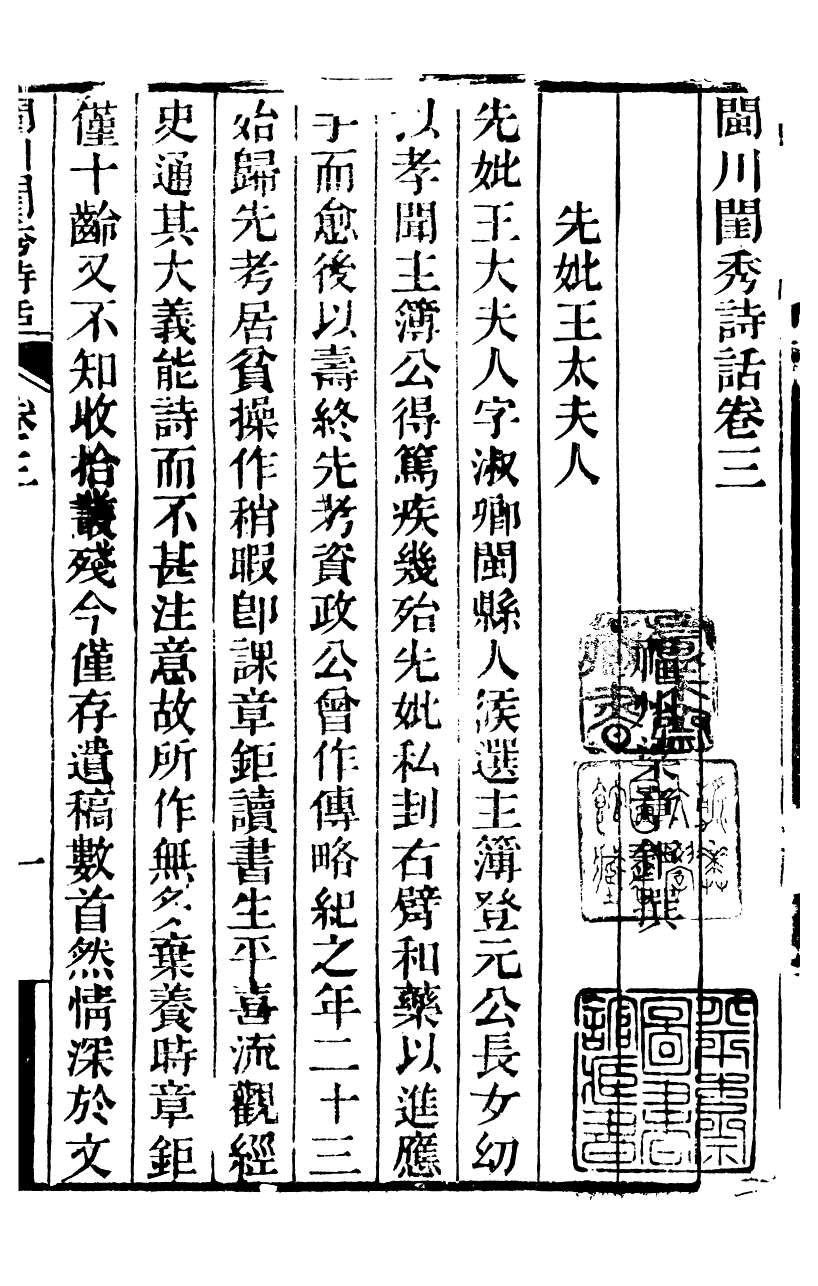 閩川閨秀詩話卷三
福州梁章鉅撰
先妣王太夫人
先妣王太夫人字淑卿閩縣人候選主簿登元公長女幼
以孝聞主簿公得篤疾幾殆先妣私刲右臂和藥以進應
手而愈後以壽終先考資政公曾作傳略紀之年二十三
始歸先考居貧操作稍暇卽課章鉅讀書生平喜流觀經
史通其大義能詩而不甚注意故所作無多棄養時章鉅
僅十齡又不知收拾叢殘今僅存遺稿數首然情深於文
閩川閨秀詩話
卷三
一